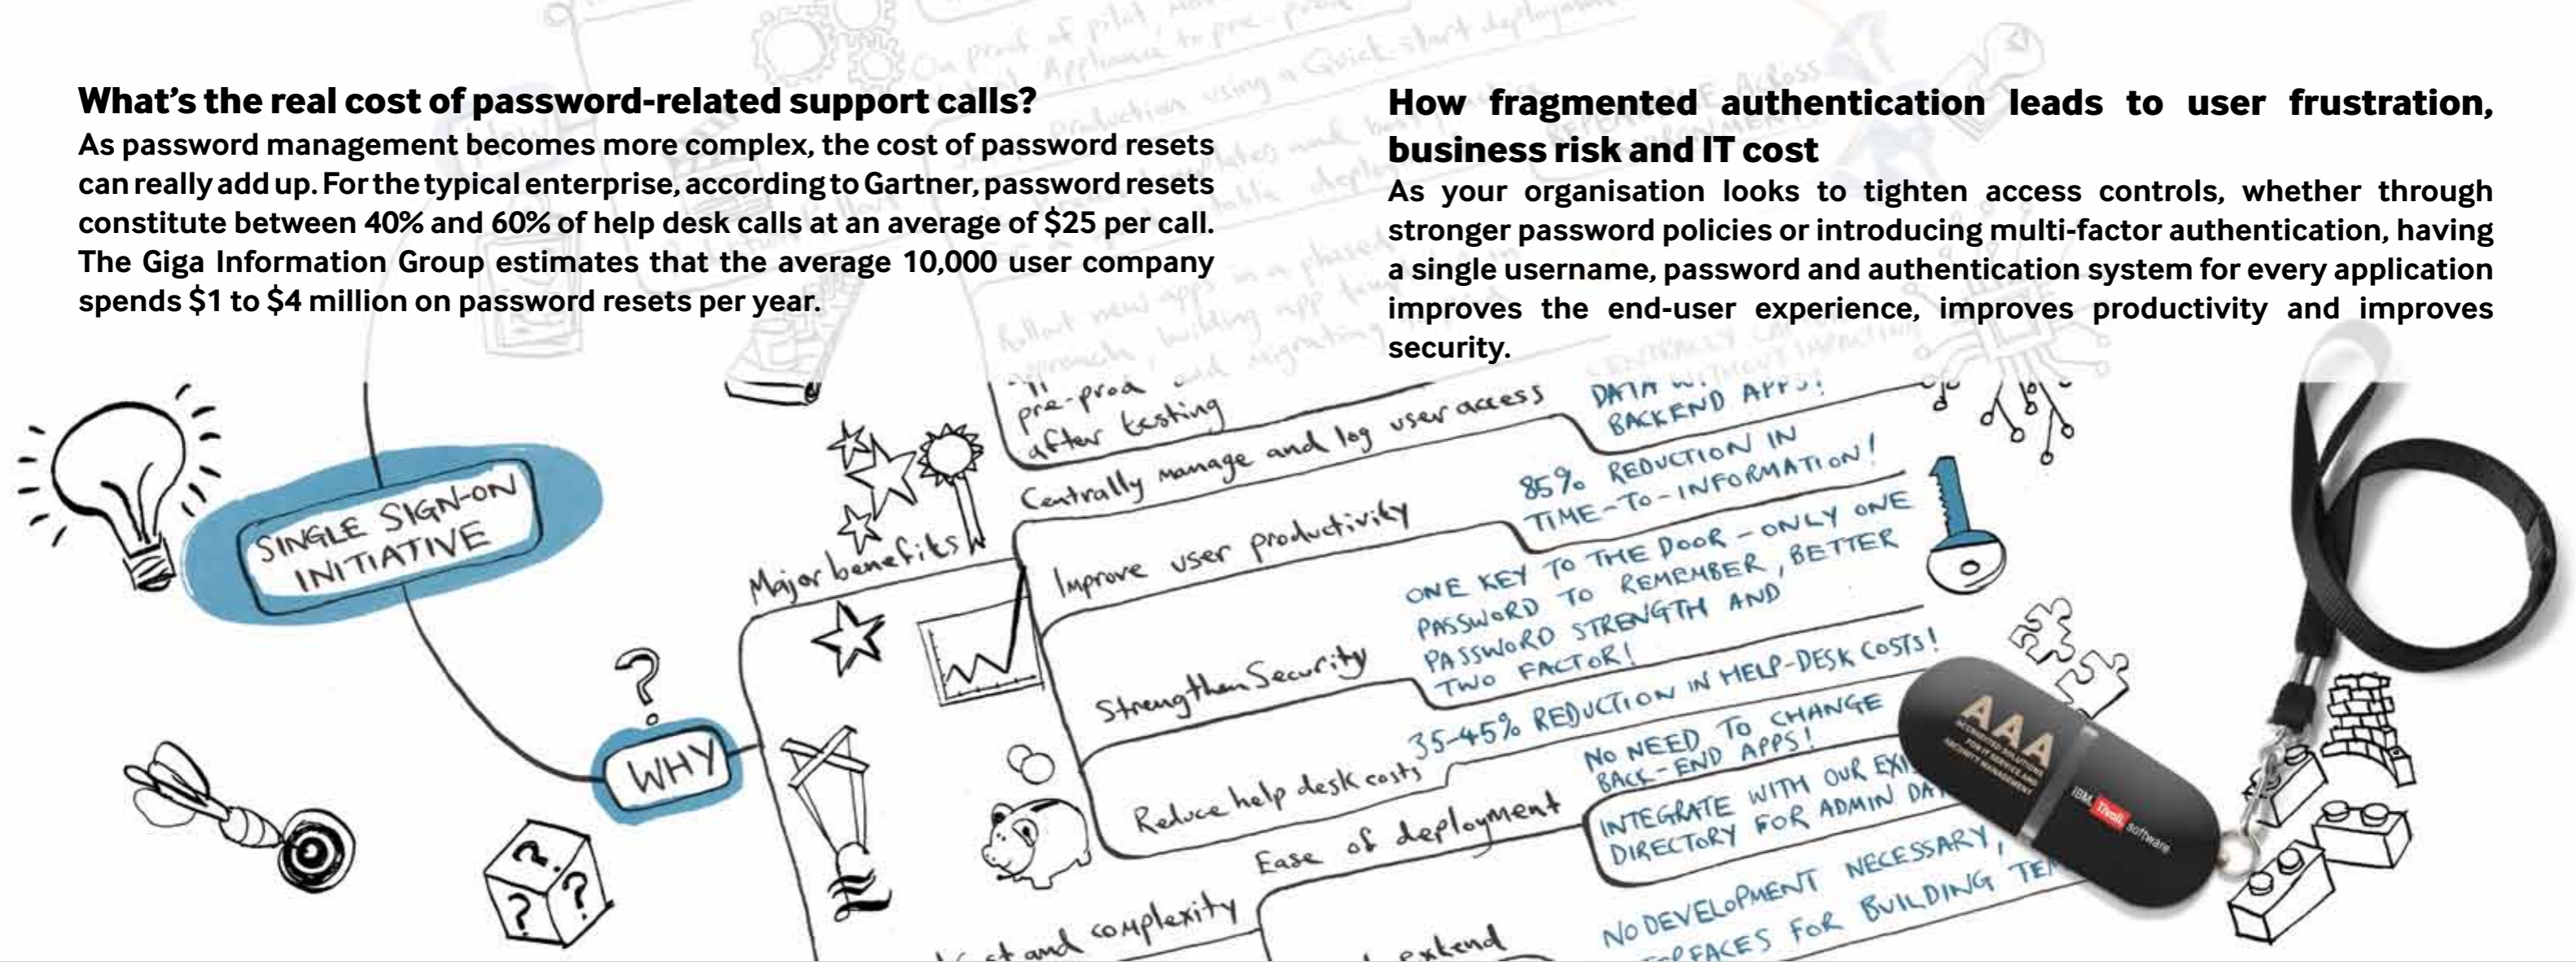 What's the real cost of password-related support calls?
As password management becomes more complex, the cost of password resets
can really add up. For the typical enterprise, according to Gartner, password resets
constitute between 40% and 60% of help desk calls at an average of $25 per call.
The Giga Information Group estimates that the average 10,000 user company
spends $1 to $4 million on password resets per year.
How fragmented authentication leads to user frustration,
business risk and IT cost
As your organisation looks to tighten access controls, whether through
stronger password policies or introducing multi-factor authentication, having
a single username, password and authentication system for every application
improves the end-user experience, improves productivity and improves
security.
On proof of pilot,
Appliance to pre-prod
production using a Quick-start deployment
Rollout new apps in a phased
approach, building app
and migrating
pre-prod
after testing
Centrally manage and log user access
DATA
BACKEND APPS!
SINGLE SIGN-ON
INITIATIVE
Major benefits
Improve user productivity
85% REDUCTION IN
TIME-TO-INFORMATION!
Strengthen Security
ONE KEY TO THE DOOR - ONLY ONE
PASSWORD TO REMEMBER, BETTER
PASSWORD STRENGTH AND
TWO FACTOR!
?
WHY
Reduce help desk costs
35-45% REDUCTION IN HELP-DESK COSTS!
Ease of deployment
NO NEED TO CHANGE
BACK-END APPS!
INTEGRATE WITH OUR
DIRECTORY FOR ADMIN
and complexity
extend
NO DEVELOPMENT NECESSARY,
FOR BUILDING
? ? ?
AAA
ACCREDITED SOLUTIONS
FOR IT SERVICE AND
SECURITY MANAGEMENT
IBM Tivoli software